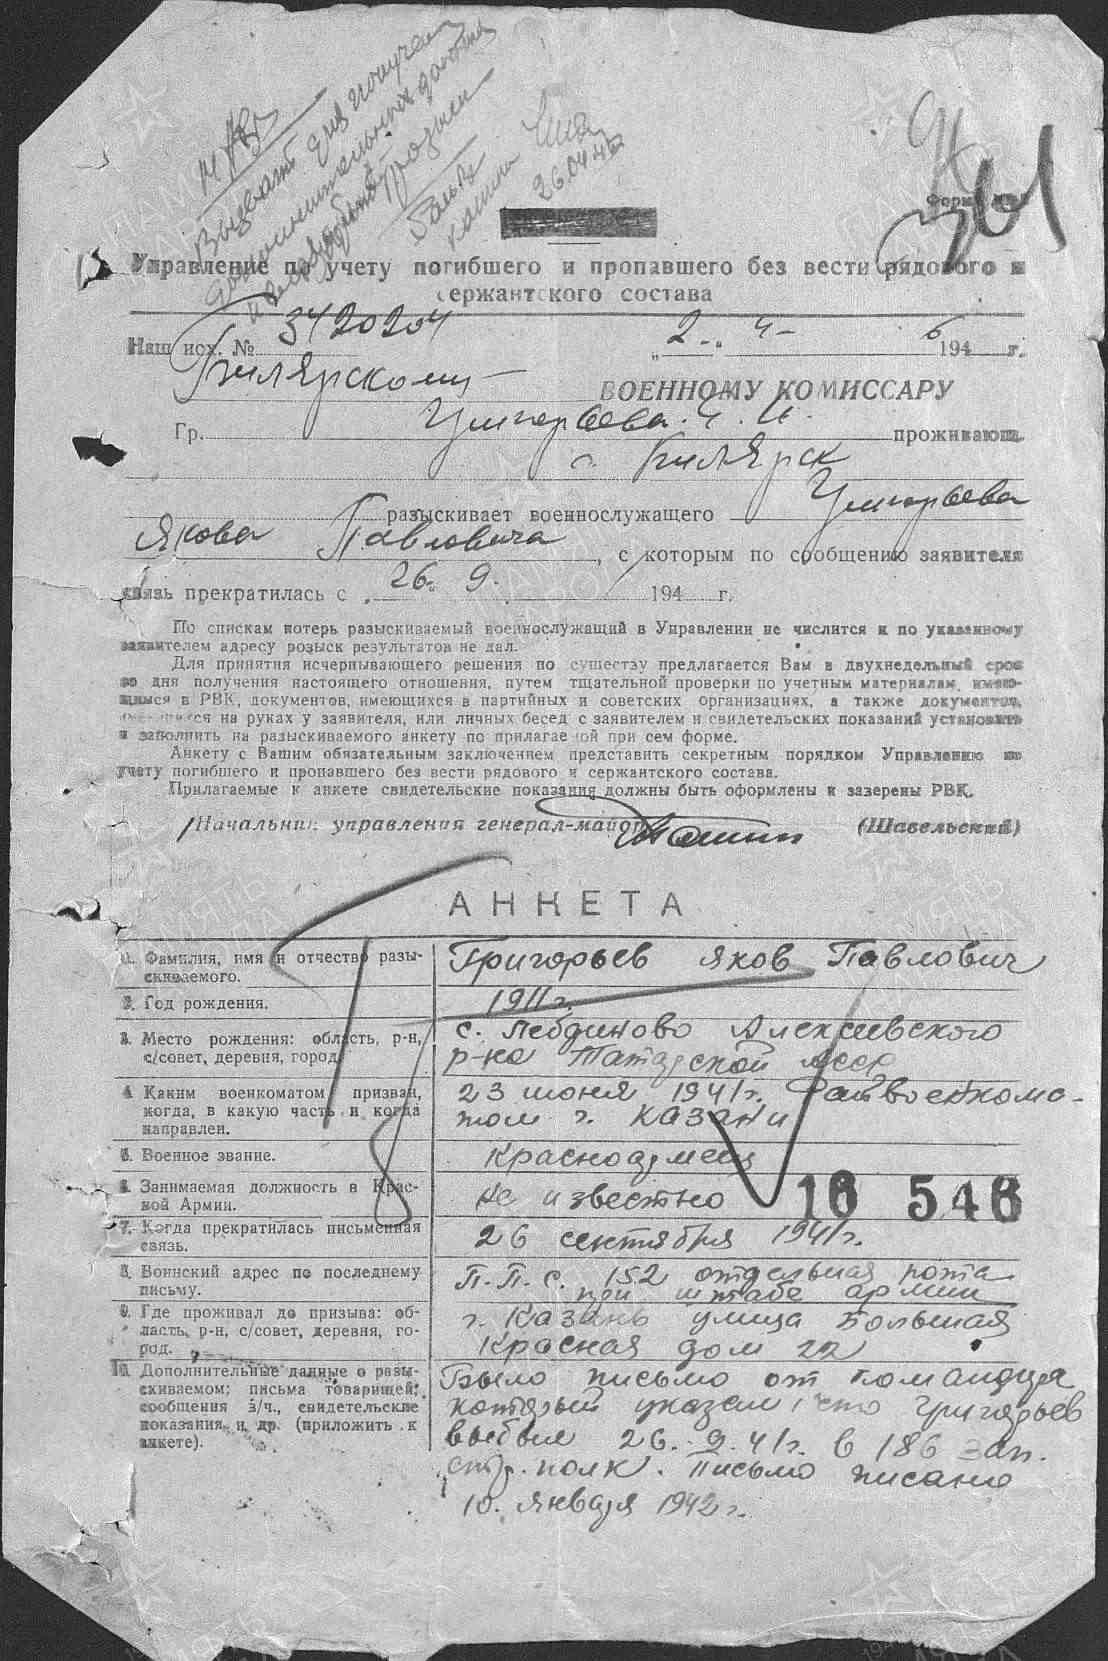 Вызвать для получен
дополнительных данных
26.04.46
Форма №
361
Управление по учету погибшего и пропавшего без вести рядового и
сержантского состава
Наш исх. № 3420204 „2„ 4- 1946 г.
Билярскому ВОЕННОМУ КОМИССАРУ
Гр. Григорьева. проживающ.
с. Билярск
разыскивает военнослужащего Григорьева
Якова Павловича, с которым по сообщению заявителя
связь прекратилась с „26„ 9. 194 г.
По спискам потерь разыскиваемый военнослужащий в Управлении не числится и по указанному
заявителем адресу розыск результатов не дал.
Для принятия исчерпывающего решения по существу предлагается Вам в двухнедельный срок
со дня получения настоящего отношения, путем тщательной проверки по учетным материалам, имею-
щимся в РВК, документов, имеющихся в партийных и советских организациях, а также документов,
имеющихся на руках у заявителя, или личных бесед с заявителем и свидетельских показаний установить
и заполнить на разыскиваемого анкету по прилагаемой при сем форме.
Анкету с Вашим обязательным заключением представить секретным порядком Управлению по
учету погибшего и пропавшего без вести рядового и сержантского состава.
Прилагаемые к анкете свидетельские показания должны быть оформлены и зазерены РВК.
Начальник управления генерал-майор (Шавельский)
АНКЕТА
1. Фамилия, имя и отчество разы-
скиваемого.
Григорьев Яков Павлович
2. Год рождения.
1911 г.
3. Место рождения: область, р-н,
с/совет, деревня, город.
с. Лебдиново Алексеевского
р-на Татарской АССР
4. Каким военкоматом призван,
когда, в какую часть и когда
направлен.
23 июня 1941 г. Райвоенкома-
том г. Казани
5. Военное звание.
Красноармеец
6. Занимаемая должность в Крас-
ной Армии.
Не известно
16 546
7. Когда прекратилась письменная
связь.
26 сентября 1941 г.
8. Воинский адрес по последнему
письму.
П.П.С. 152 отдельная рота
при штабе армии
9. Где проживал до призыва: об-
ласть, р-н, с/совет, деревня, го-
род.
г. Казань улица Большая
Красная дом 22
10. Дополнительные данные о разы-
скиваемом; письма товарищей;
сообщения з/ч., свидетельские
показания и др. (приложить к
анкете).
Было письмо от командира
который указал что Григорьев
выбыл 26. 9. 41 г. в 186 зап.
стр. полк. Письмо писано
10. января 1942 г.